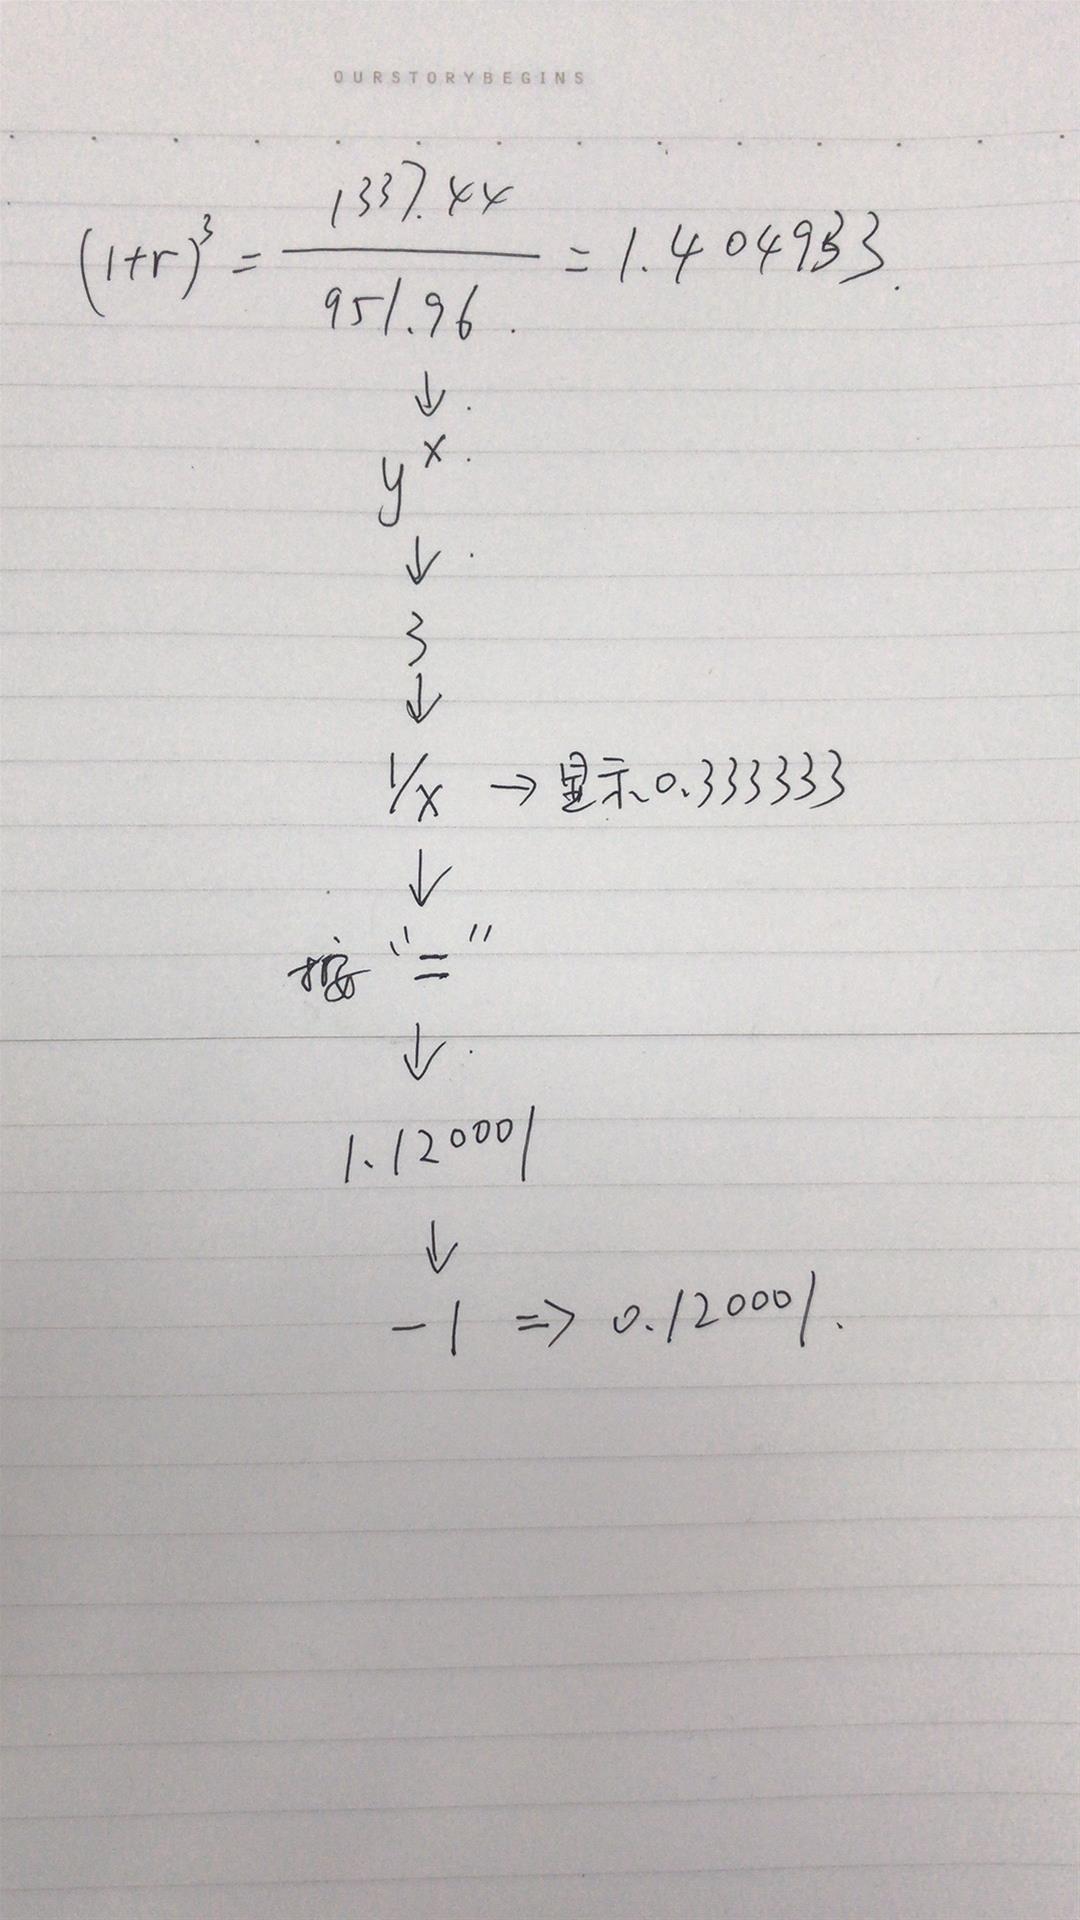 OURSTORYBEGINS
(1+r)³ = 1337.44 / 951.96 = 1.404933
↓
yˣ
↓
3
↓
1/x → 显示0.333333
↓
按 "="
↓
1.120001
↓
-1 => 0.120001.